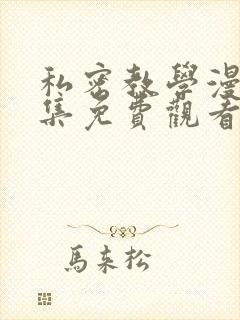 私密教學漫
集免費觀看
馬東松